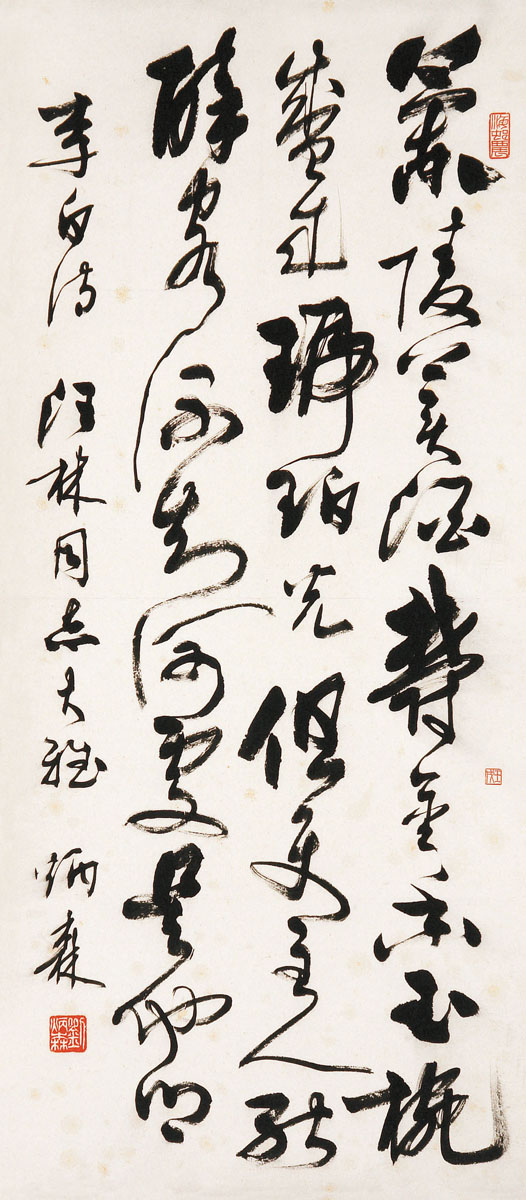 蘭陵美酒鬱金香玉椀
盛来琥珀光但使主人能
醉客不知何處是他鄉
李白诗 汪林同志大雅 炳森
劉炳森